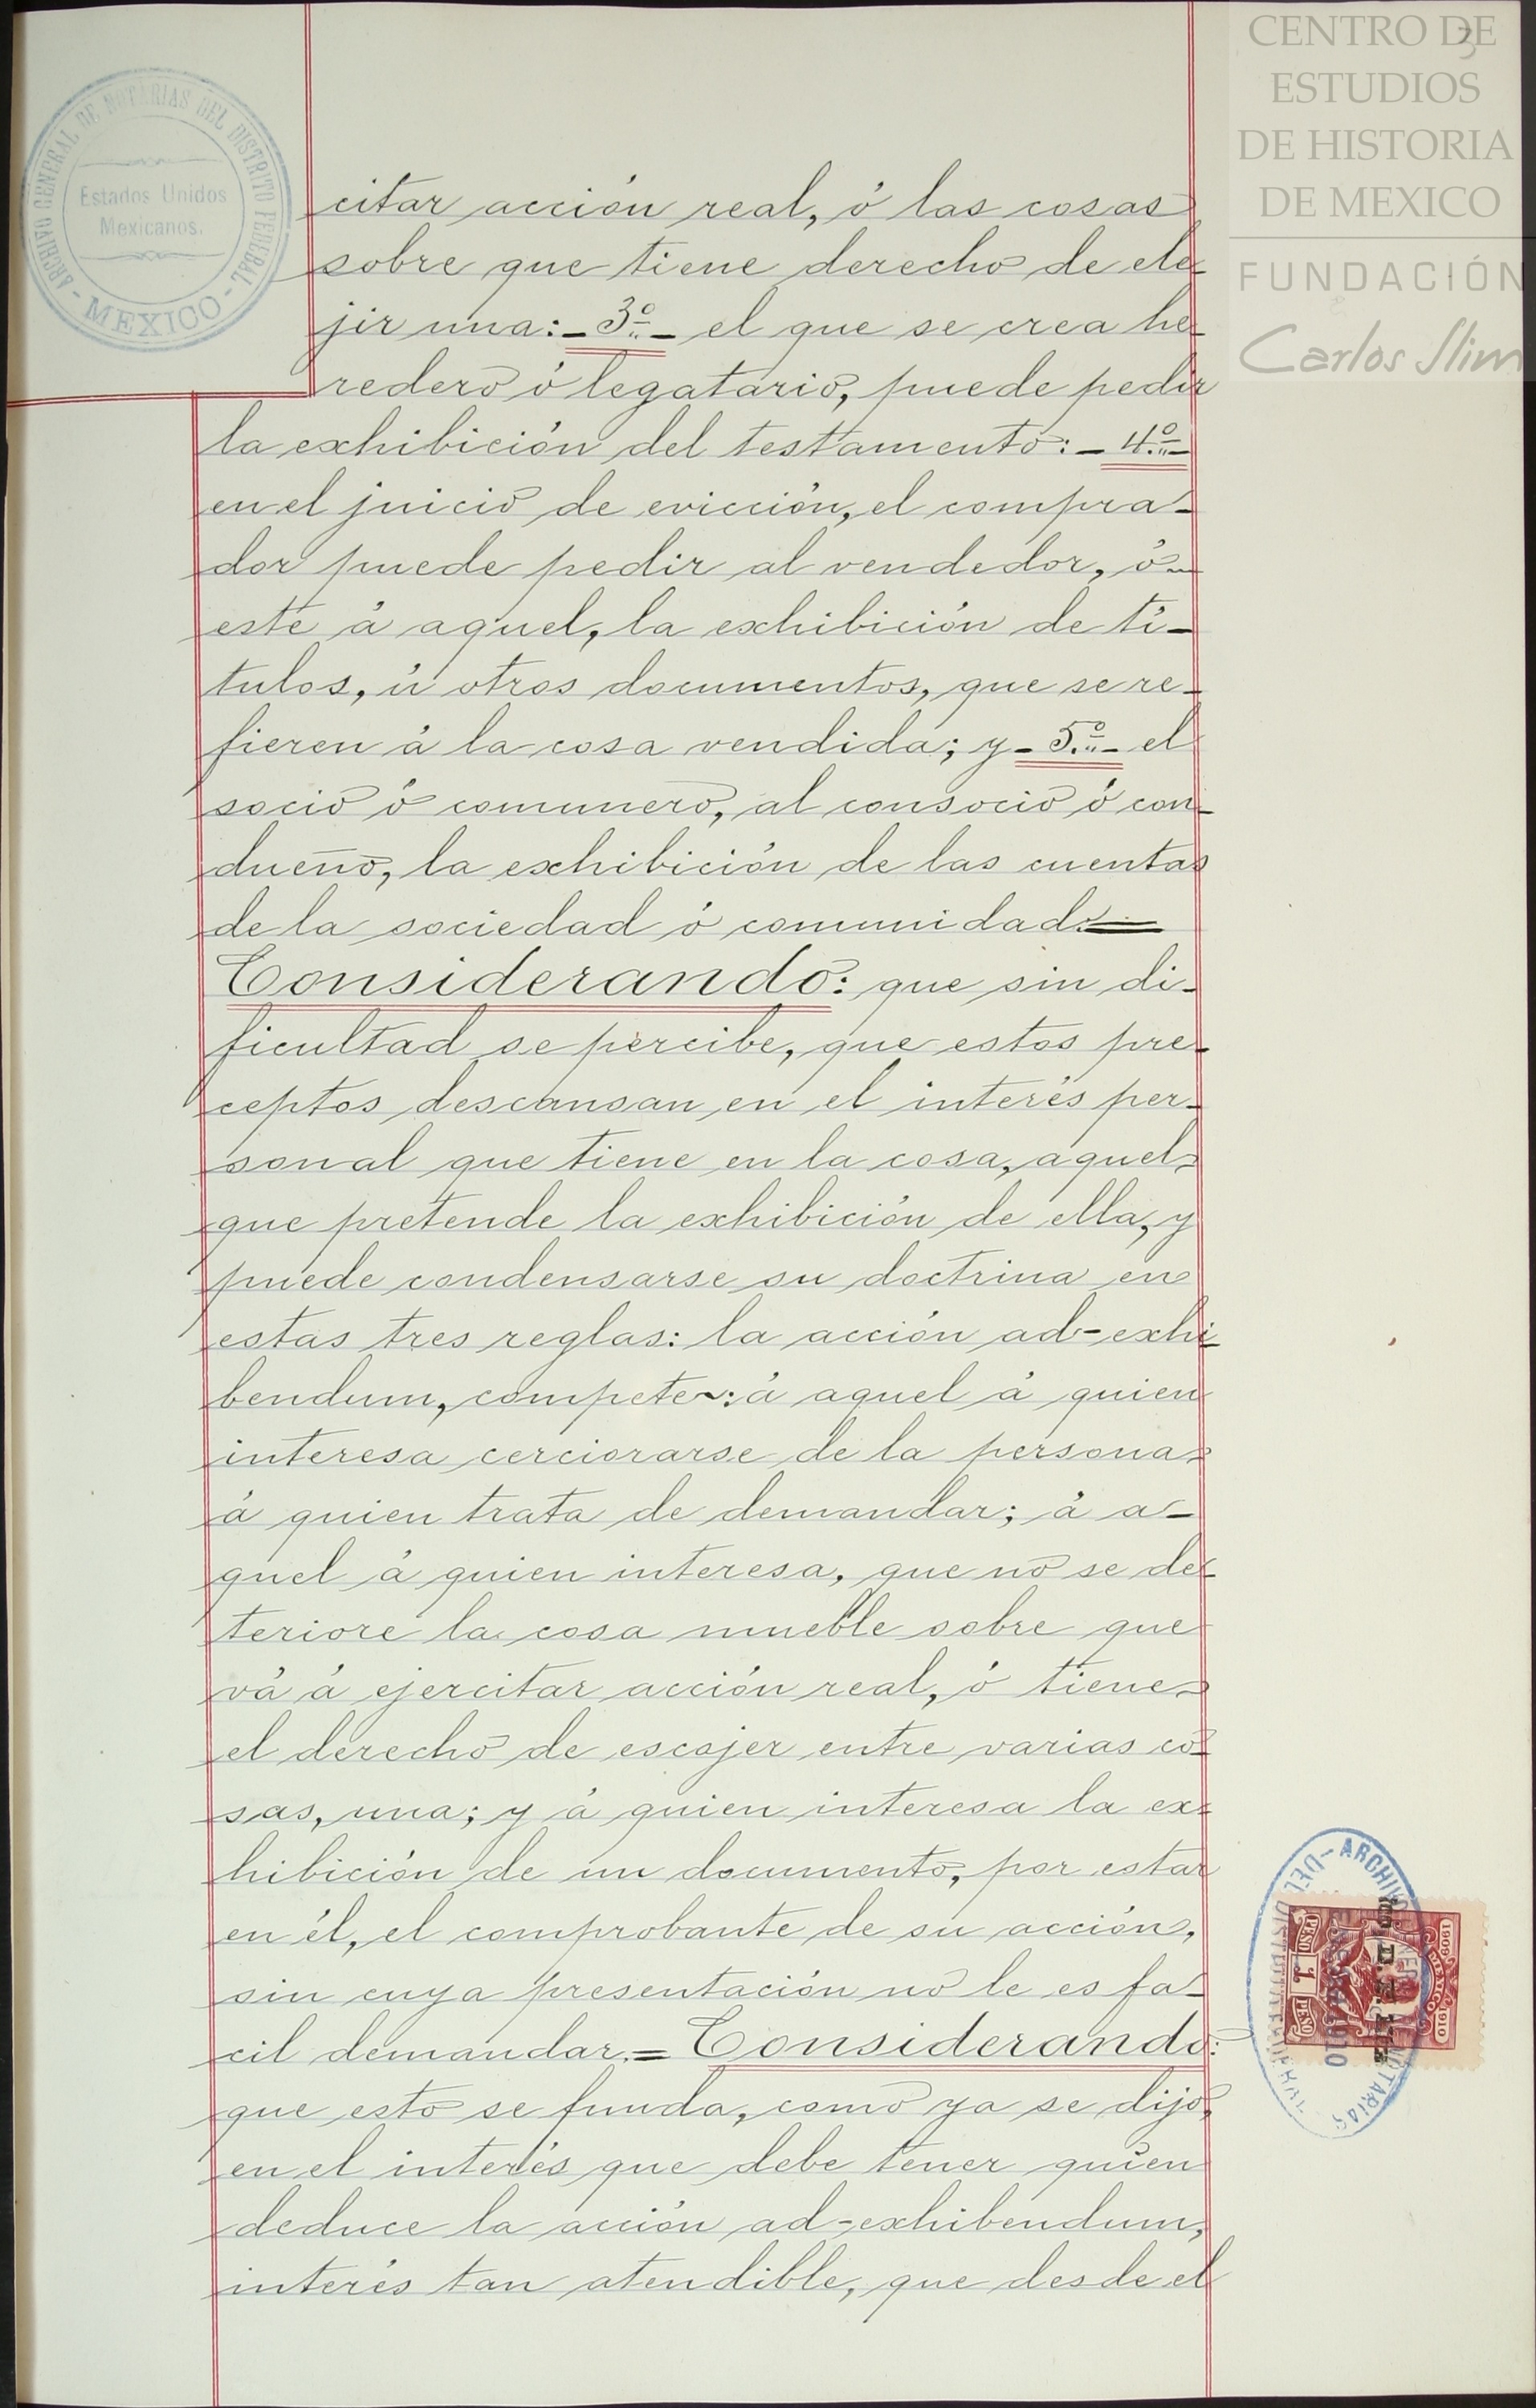 3
CENTRO DE
ESTUDIOS
DE HISTORIA
DE MEXICO
FUNDACIÓN
Carlos Slim
ARCHIVO GENERAL DE NOTARIAS DEL DISTRITO FEDERAL
Estados Unidos
Mexicanos.
- MEXICO -
citar acción real, ó las cosas
sobre que tiene derecho de ele-
jir una: - 3º - el que se crea he-
redero ó legatario, puede pedir
la exhibición del testamento: - 4º -
en el juicio de evicción, el compra-
dor puede pedir al vendedor, ó
este á aquel, la exhibición de tí-
tulos, ú otros documentos, que se re-
fieren á la cosa vendida; y - 5º - el
socio ó comunero, al consocio ó con-
dueño, la exhibición de las cuentas
de la sociedad ó comunidad. =
Considerando: que sin di-
ficultad se percibe, que estos pre-
ceptos descansan en el interés per-
sonal que tiene en la cosa, aquel
que pretende la exhibición de ella, y
puede condensarse su doctrina en
estas tres reglas: la acción ad-exhi-
bendum, compete~: á aquel á quien
interesa cerciorarse de la persona
á quien trata de demandar; á a-
quel á quien interesa, que no se de-
teriore la cosa mueble sobre que
vá á ejercitar acción real, ó tiene
el derecho de escojer entre varias co-
sas, una; y á quien interesa la ex-
hibición de un documento, por estar
en él, el comprobante de su acción,
sin cuya presentación no le es fa-
cil demandar. = Considerando:
que esto se funda, como ya se dijo,
en el interés que debe tener quien
deduce la acción ad-exhibendum,
interés tan atendible, que desde el
DEL - ARCHIVO
NOTARIAS
1909
1910
MEXICO
PESO 1 PESO
1910